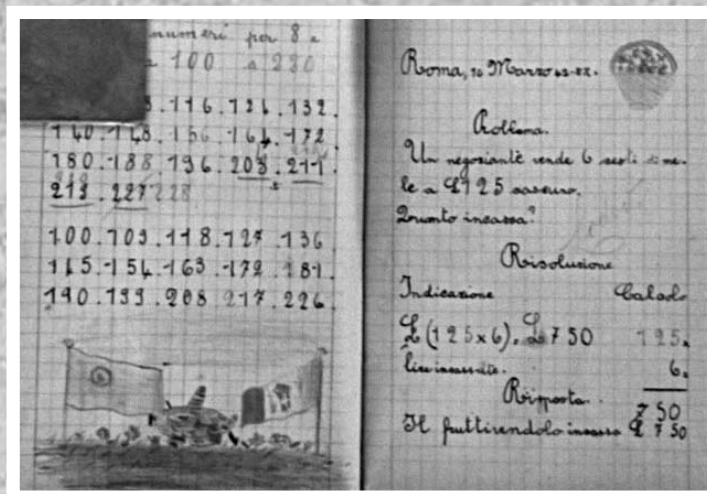 numeri per 8 e
a 100 a 230
116.124.132.
140.148.156.164.172
180.188.196.203.211.
219.227 228
100.109.118.127.136
145.154.163.172.181.
190.199.208 217.226.
Roma, 16 Marzo
Problema.
Un negoziante vende 6 cesti di me-
le a £125 
Quanto incassa?
Risoluzione
Indicazione Calcolo
£(125x6)=£750 125x
lire incassate. 6=
Risposta. 750
Il fruttivendolo incassa £ 750